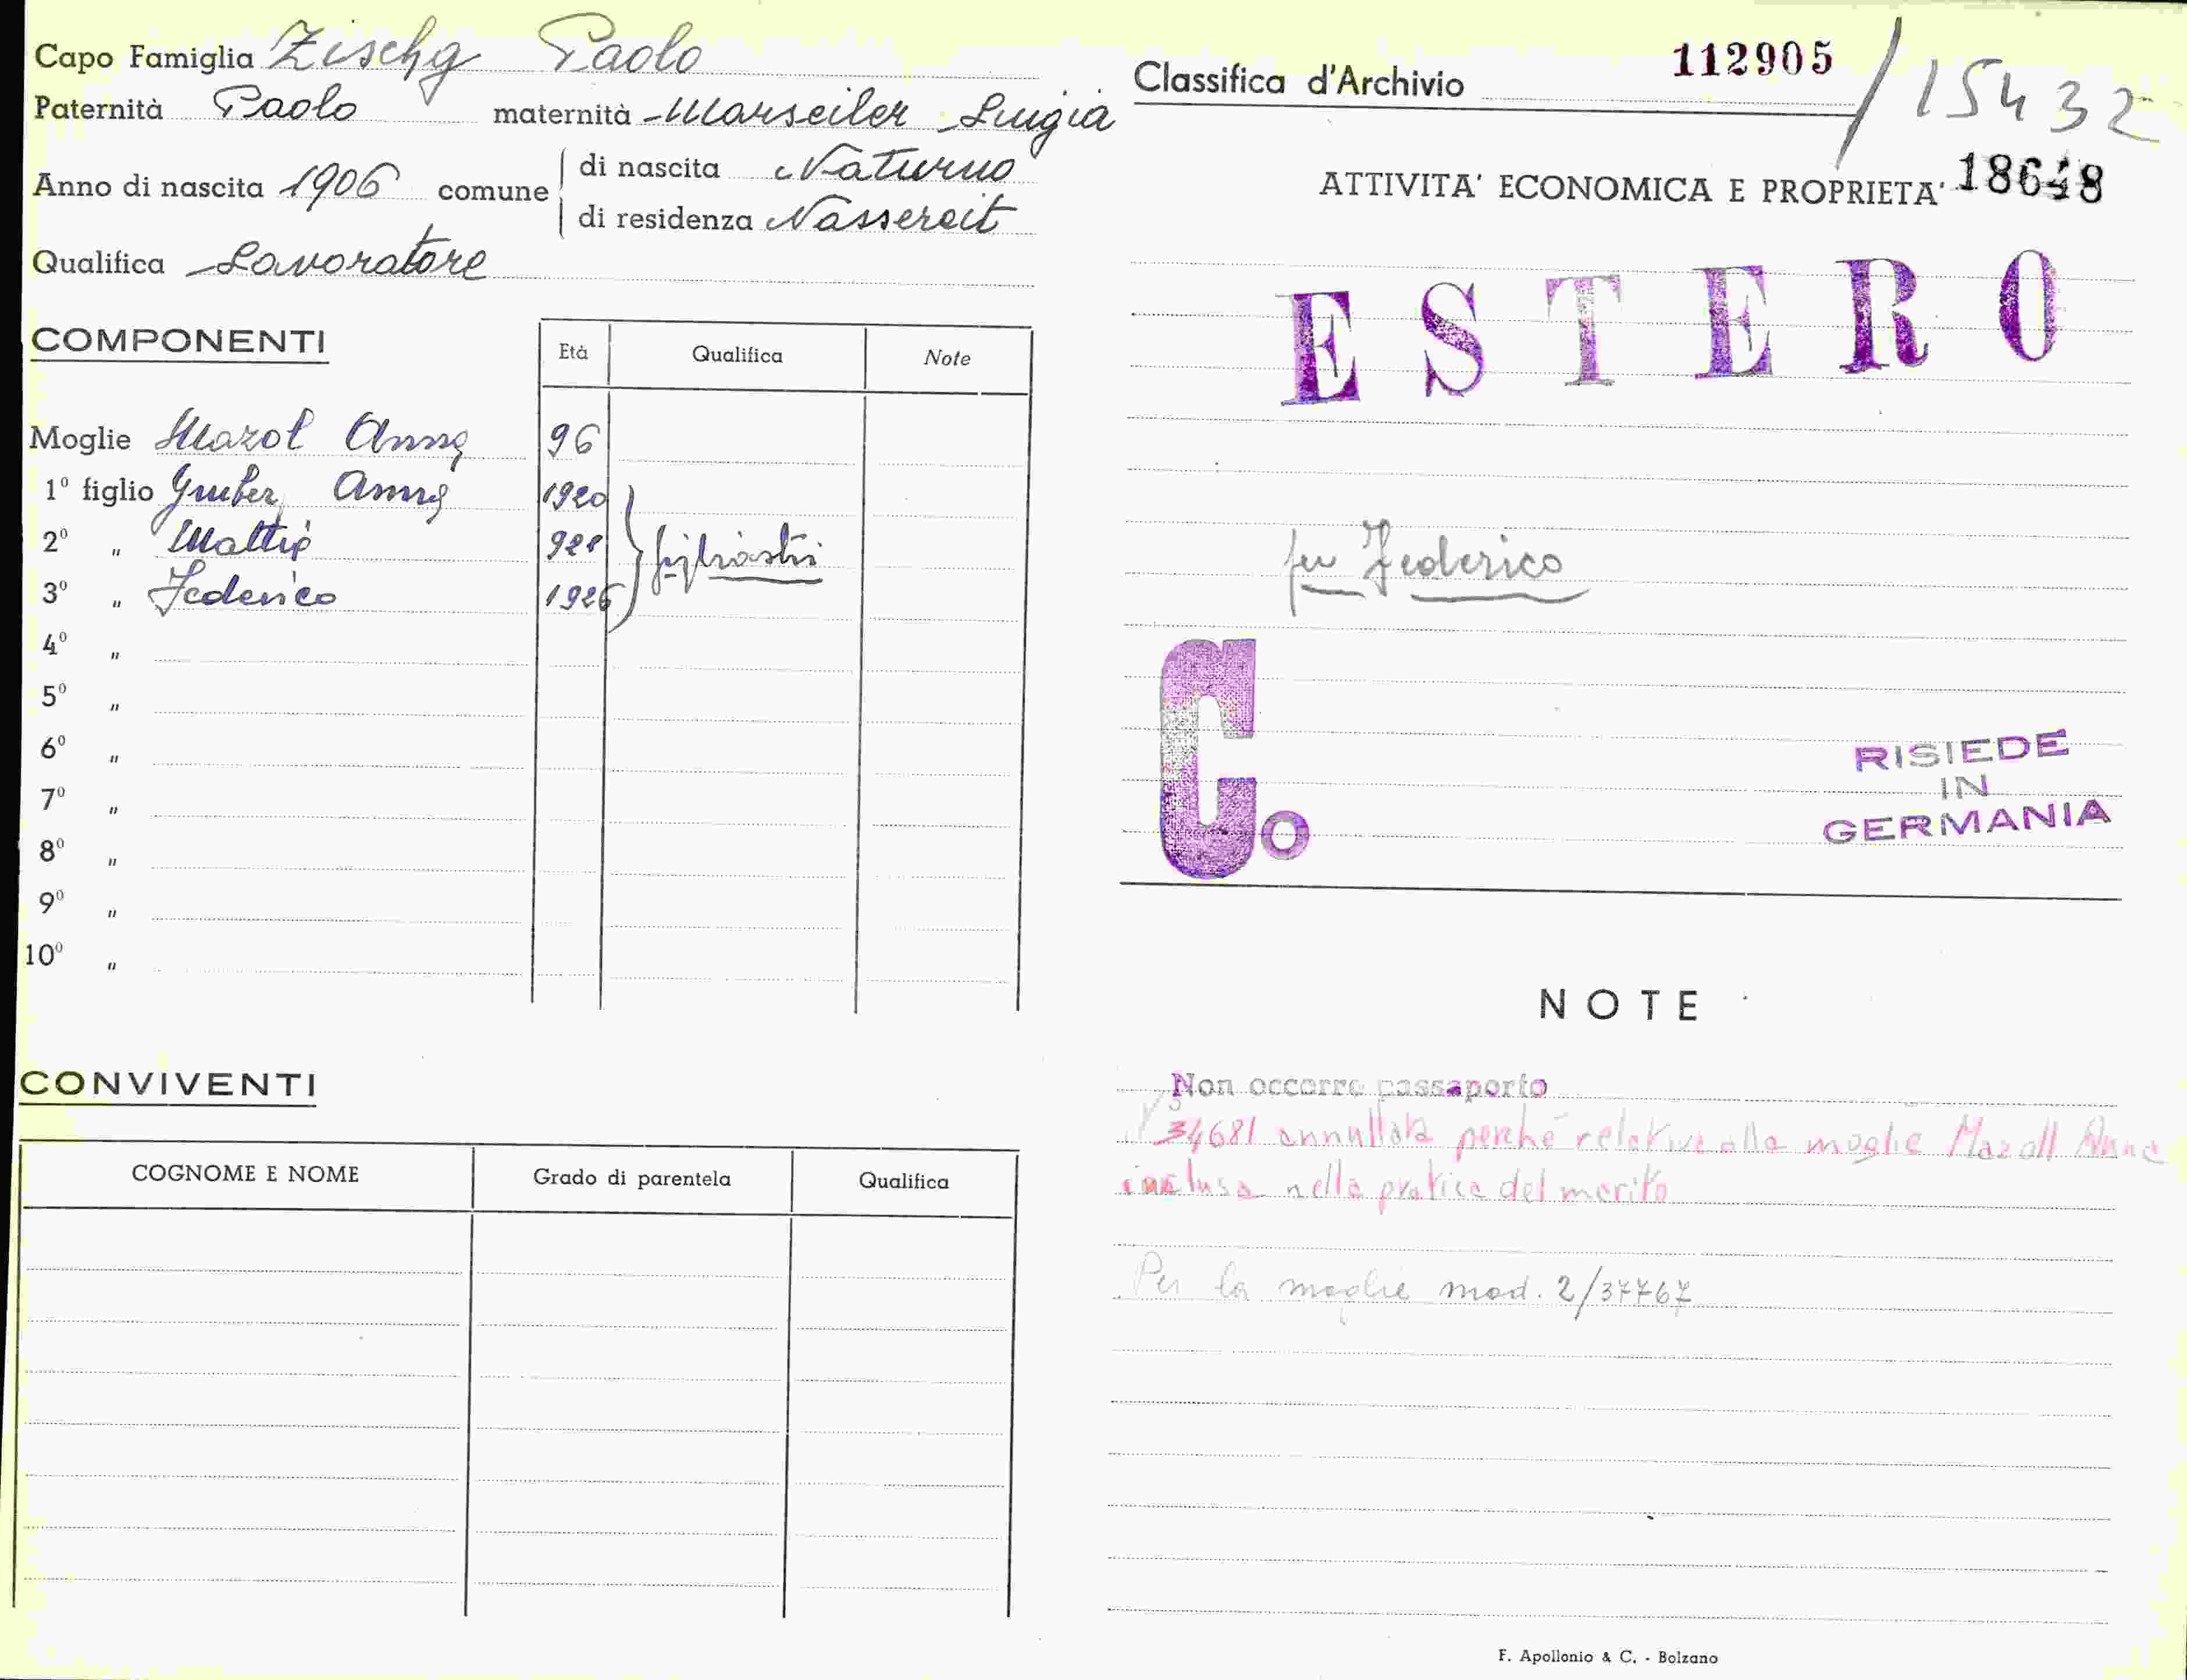 Capo Famiglia Zischg Paolo
Paternità Paolo maternità Marseiler Luigia
Anno di nascita 1906 comune di nascita Naturno
di residenza Nassereit
Qualifica Lavoratore
COMPONENTI
Età Qualifica Note
Moglie Mazol Anna 96
1º figlio Gruber Anna 1920
2º " Mattia 921
3º " Federico 1926
figliastri
4º "
5º "
6º "
7º "
8º "
9º "
10º "
CONVIVENTI
COGNOME E NOME Grado di parentela Qualifica
Classifica d'Archivio 112905 / 15432
ATTIVITA' ECONOMICA E PROPRIETA' 18648
ESTERO
fu Federico
Co
RISIEDE
IN
GERMANIA
NOTE
Non occorre passaporto
34681 annullata perché relativa alla moglie Mazoll Anna
inclusa nella pratica del marito
Per la moglie mod. 2/37767
F. Apollonio & C. - Bolzano